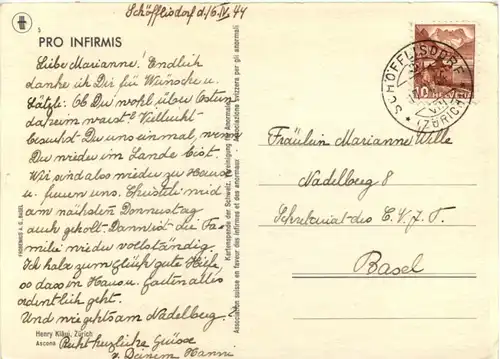 Schöfflisdorf d. 16. IV. 44
PRO INFIRMIS
Liebe Marianne! Endlich
danke ich Dir für Wünsche u.
Ob Du wohl über Ostern
daheim warst? Vielleicht
besuchst Du uns einmal, wenn
Du wieder im Lande bist.
Wir sind also wieder zu Hause
u. freuen uns. wird
am nächsten Donnerstag
auch geholt. Dann ist die Fa-
milie wieder vollständig.
Ich habe zum Glück gute Hilfe,
so dass in Haus u. Garten alles
ordentlich geht.
Und wie gehts am Nadelberg?
Recht herzliche Grüsse
v. Deinem Hanni
Henry Kläui, Zürich
Ascona
FROBENIUS A. G. BASEL
Kartenspende der Schweiz. Vereinigung für Anormale
Association suisse en faveur des infirmes et des anormaux
Associazione svizzera per gli anormali
SCHÖFFLISDORF
(ZÜRICH)
10
Fräulein Marianne Wille
Nadelberg 8
Sekretariat des C. V. J. T.
Basel